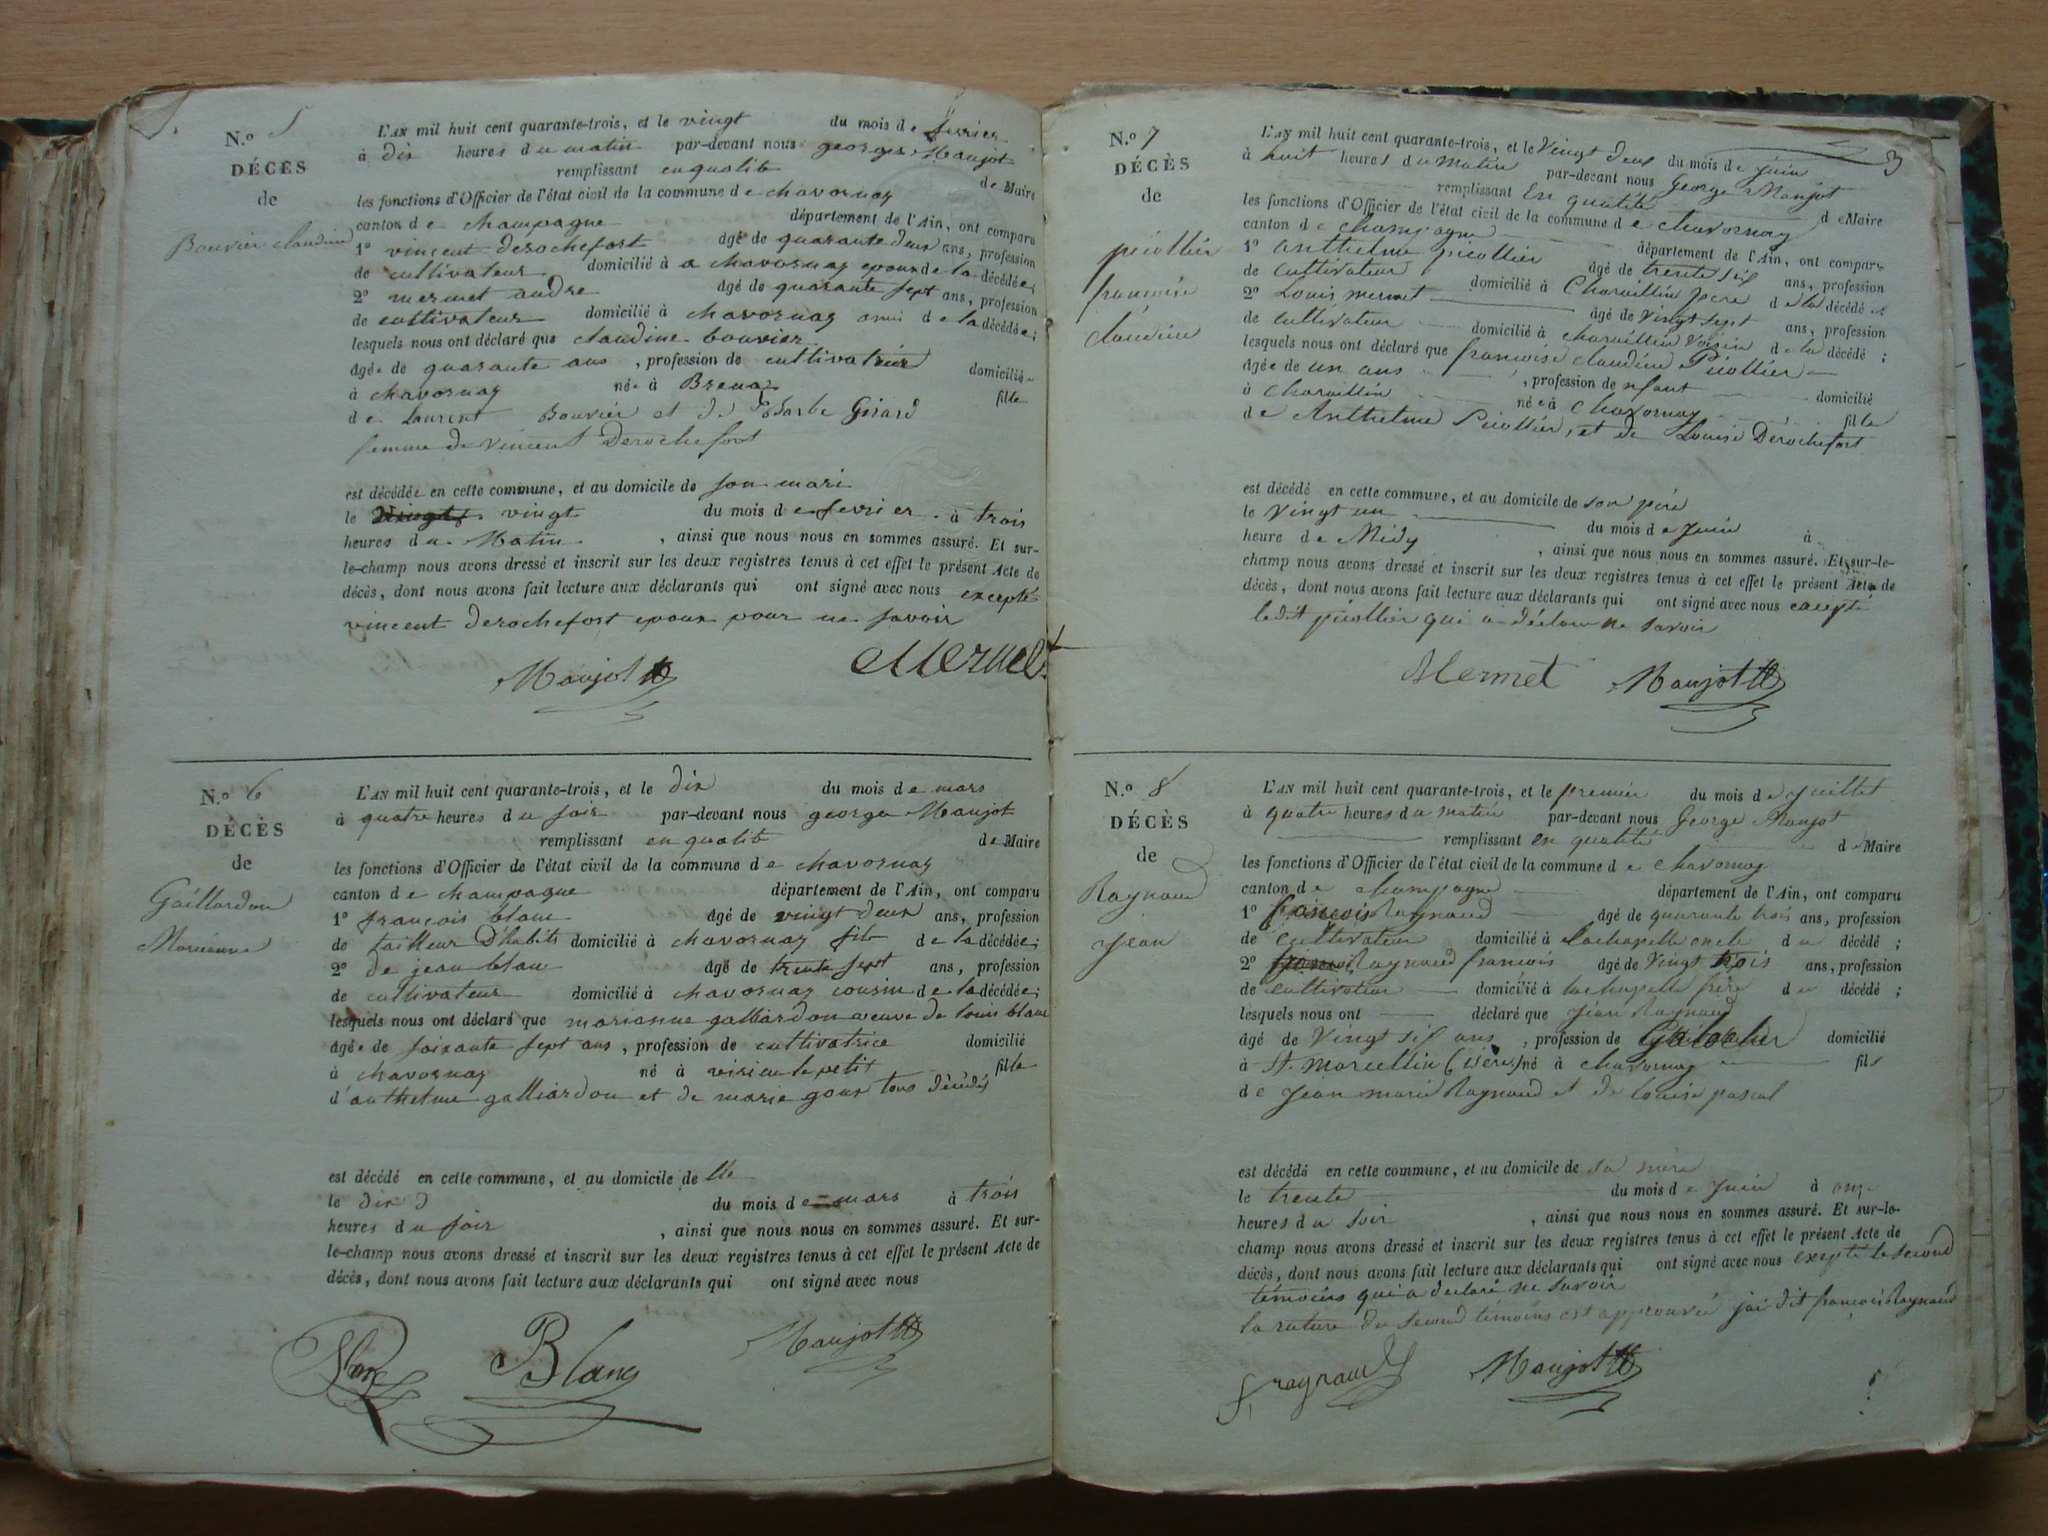 N.o 5
DÉCÈS
de
Bouvier claudine
L'AN mil huit cent quarante-trois, et le vingt du mois de fevrier
à dix heures du matin par-devant nous georges Maujot
remplissant en qualité de Maire
les fonctions d'Officier de l'état civil de la commune de chavornay
canton de champagne département de l'Ain, ont comparu
1o vincent derochefort âgé de quarante deux ans, profession
de cultivateur domicilié à a chavornay epoux de la décédée;
2o mermet andre âgé de quarante sept ans, profession
de cultivateur domicilié à chavornay ami de la décédée;
lesquels nous ont déclaré que claudine bouvier
âgée de quarante ans, profession de cultivatrice domicilié
à chavornay née à Brenaz fille
de Laurent Bouvier et de Barbe Girard
femme de vincent Derochefort
est décédée en cette commune, et au domicile de son mari
le vingt vingt du mois de fevrier à trois
heures du Matin, ainsi que nous nous en sommes assuré. Et sur-
le-champ nous avons dressé et inscrit sur les deux registres tenus à cet effet le présent Acte de
décès, dont nous avons fait lecture aux déclarants qui ont signé avec nous excepté
vincent derochefort epoux pour ne savoir
Maujot Mermet
N.o 6
DÉCÈS
de
Gaillardon
Marianne
L'AN mil huit cent quarante-trois, et le dix du mois de mars
à quatre heures du soir par-devant nous george Maujot
remplissant en qualité de Maire
les fonctions d'Officier de l'état civil de la commune de chavornay
canton de champagne département de l'Ain, ont comparu
1o françois blanc âgé de vingt deux ans, profession
de tailleur D'habits domicilié à chavornay fils de la décédée;
2o de jean blanc âgé de trente sept ans, profession
de cultivateur domicilié à chavornay cousin de la décédée;
lesquels nous ont déclaré que marianne galliardon veuve de louis blanc
âgée de soixante sept ans, profession de cultivatrice domicilié
à chavornay né à virieu le petit fille
d'anthelme galliardon et de marie goux tous décédés
est décédé en cette commune, et au domicile de lle
le dix du mois de mars à trois
heures du soir, ainsi que nous nous en sommes assuré. Et sur-
le-champ nous avons dressé et inscrit sur les deux registres tenus à cet effet le présent Acte de
décès, dont nous avons fait lecture aux déclarants qui ont signé avec nous
Blanc Maujot
3
N.o 7
DÉCÈS
de
picollier
francoise
claudine
L'AN mil huit cent quarante-trois, et le Vingt deux du mois de juin
à huit heures du Matin par-devant nous George Maujot
remplissant En qualité de Maire
les fonctions d'Officier de l'état civil de la commune de chavornay
canton de champagne département de l'Ain, ont comparu
1o anthelme picollier âgé de trente six ans, profession
de cultivateur domicilié à Charvillin père de la décédé
2o Louis mermet âgé de Vingt sept ans, profession
de cultivateur domicilié à charvillin voisin de la décédé;
lesquels nous ont déclaré que francoise claudine Picollier
âgée de un ans, profession de nfant domicilié
à charvillin née à chavornay fille
de Anthelme Picollier, et de Louise Derochefort
est décédé en cette commune, et au domicile de son père
le Vingt un du mois de Juin à
heure de Midy, ainsi que nous nous en sommes assuré. Et sur-le-
champ nous avons dressé et inscrit sur les deux registres tenus à cet effet le présent Acte de
décès, dont nous avons fait lecture aux déclarants qui ont signé avec nous excepté
ledit picollier qui a déclaré ne savoir
Mermet Maujot
N.o 8
DÉCÈS
de
Raynaud
jean
L'AN mil huit cent quarante-trois, et le premier du mois de juillet
à quatre heures du matin par-devant nous George Maujot
remplissant en qualité de Maire
les fonctions d'Officier de l'état civil de la commune de chavornay
canton de champagne département de l'Ain, ont comparu
1o francois Raynaud âgé de quarante trois ans, profession
de cultivateur domicilié à lachapelle oncle du décédé;
2o Raynaud francois âgé de Vingt trois ans, profession
de cultivateur domicilié à lachapelle frère du décédé;
lesquels nous ont déclaré que Jean Raynaud
âgé de Vingt six ans, profession de domicilié
à St. Marcellin (isère) né à chavornay fils
de Jean marie Raynaud et de louise pascal
est décédé en cette commune, et au domicile de sa mère
le trente du mois de Juin à onze
heures du soir, ainsi que nous nous en sommes assuré. Et sur-le-
champ nous avons dressé et inscrit sur les deux registres tenus à cet effet le présent Acte de
décès, dont nous avons fait lecture aux déclarants qui ont signé avec nous excepté le second
témoins qui a déclaré ne savoir
la rature du second témoins est approuvée jai dit françois Raynaud
f. raynaud Maujot